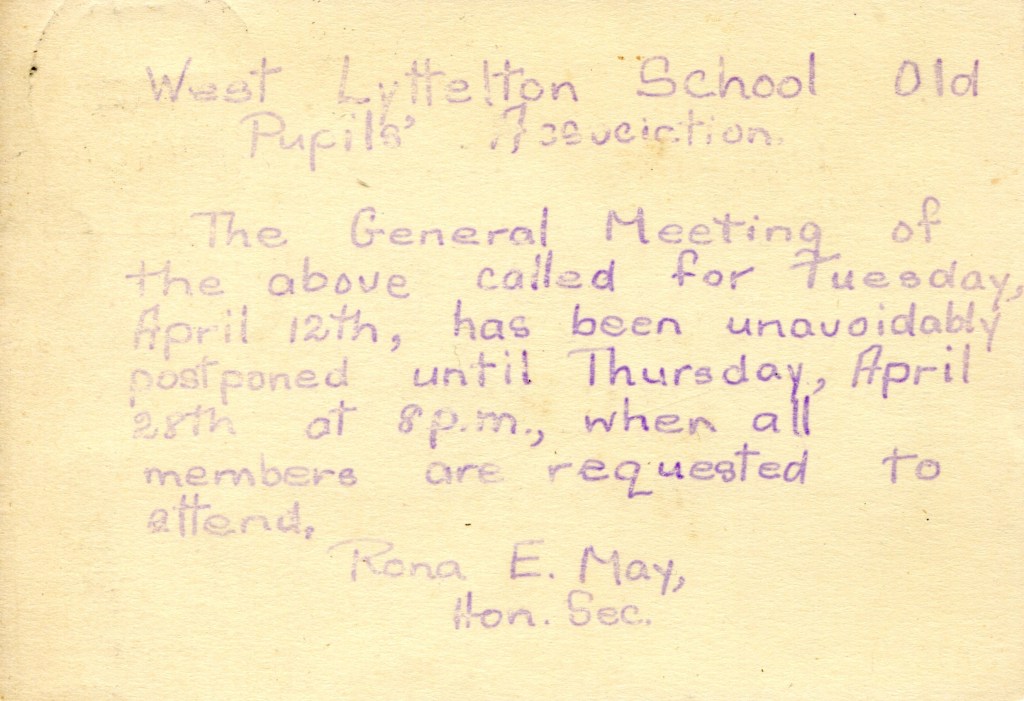 West Lyttelton School Old
Pupils' Association.
The General Meeting of
the above called for Tuesday,
April 12th, has been unavoidably
postponed until Thursday, April
28th at 8 p.m., when all
members are requested to
attend.
Rona E. May,
Hon. Sec.